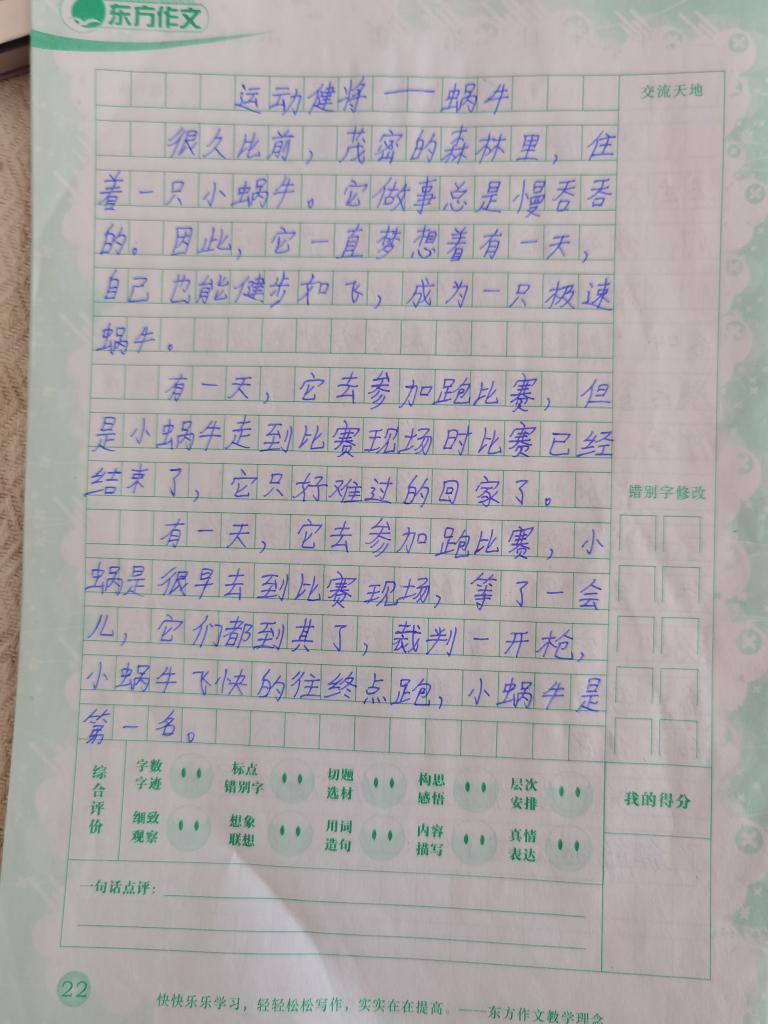 东方作文
运动健将——蜗牛
交流天地
很久比前，茂密的森林里，住
着一只小蜗牛。它做事总是慢吞吞
的。因此，它一直梦想着有一天，
自己也能健步如飞，成为一只极速
蜗牛。
有一天，它去参加跑比赛，但
是小蜗牛走到比赛现场时比赛已经
结束了，它只好难过的回家了。
错别字修改
有一天，它去参加跑比赛，小
蜗是很早去到比赛现场，等了一会
儿，它们都到其了，裁判一开枪，
小蜗牛飞快的往终点跑，小蜗牛是
第一名。
综合评价
字数 字迹
标点 错别字
切题 选材
构思 感悟
层次 安排
我的得分
细致 观察
想象 联想
用词 造句
内容 描写
真情 表达
一句话点评：
22
快快乐乐学习，轻轻松松写作，实实在在提高。——东方作文教学理念